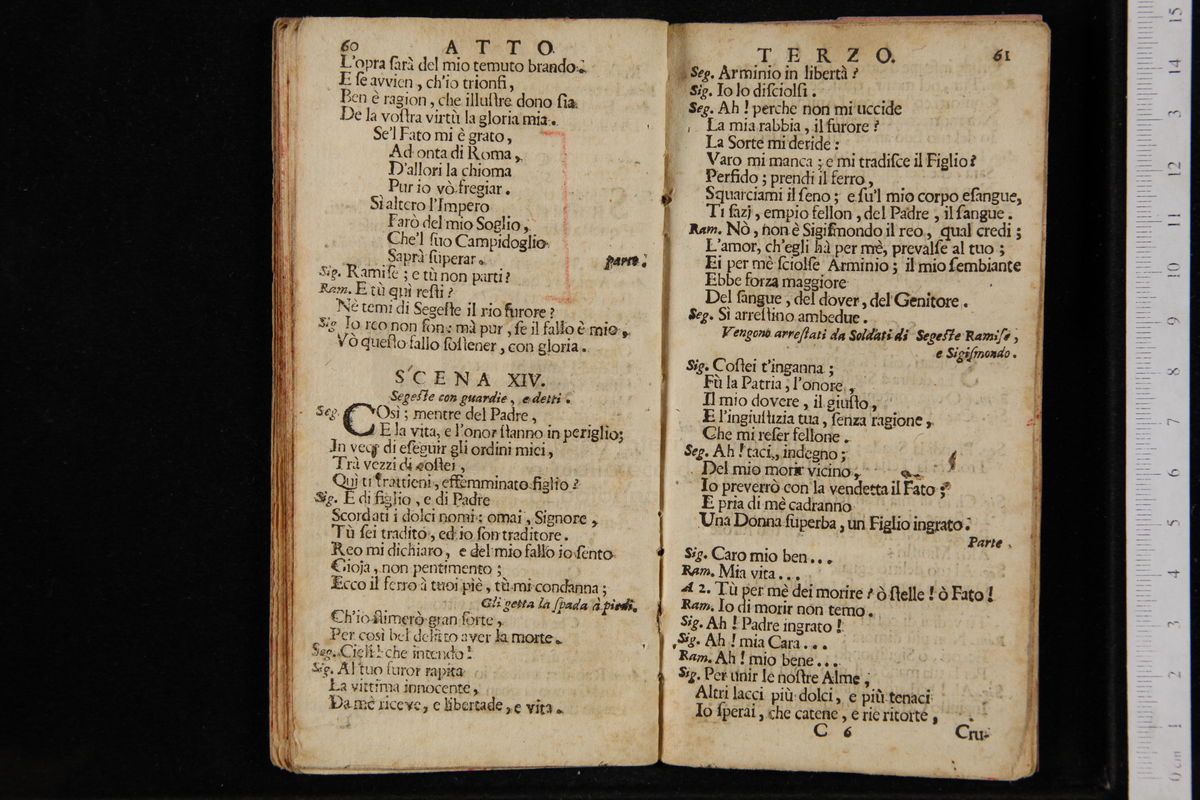 60 ATTO
L'opra ſarà del mio temuto brando.
E ſe avvien, ch'io trionfi,
Ben è ragion, che illuſtre dono ſia
De la voſtra virtù la gloria mia.
Se'l Fato mi è grato,
Ad onta di Roma,
D'allori la chioma
Pur io vò fregiar.
Sì altero l'Impero
Farò del mio Soglio,
Che'l ſuo Campidoglio
Saprà ſuperar. parte.
Sig. Ramiſe; e tù non parti?
Ram. E tù quì reſti?
Nè temi di Segeſte il rio furore?
Sig. Io reo non ſon: mà pur, ſe il fallo è mio,
Vò queſto fallo ſoſtener, con gloria.
SCENA XIV.
Segeſte con guardie, e detti.
Seg. COsì; mentre del Padre,
E la vita, e l'onor ſtanno in periglio;
In vece di eſeguir gli ordini miei,
Trà vezzi di coſtei,
Quì ti trattieni, effemminato figlio?
Sig. E di figlio, e di Padre
Scordati i dolci nomi; omai, Signore,
Tù ſei tradito, ed io ſon traditore.
Reo mi dichiaro, e del mio fallo io ſento
Gioja, non pentimento;
Ecco il ferro à tuoi piè, tù mi condanna;
Gli getta la ſpada à piedi.
Ch'io ſtimerò gran ſorte,
Per così bel delitto aver la morte.
Seg. Cieli! che intendo!
Sig. Al tuo furor rapita
La vittima innocente,
Da mè riceve, e libertade, e vita.
TERZO. 61
Seg. Arminio in libertà?
Sig. Io lo diſciolſi.
Seg. Ah! perche non mi uccide
La mia rabbia, il furore?
La Sorte mi deride:
Varo mi manca; e mi tradiſce il Figlio?
Perfido; prendi il ferro,
Squarciami il ſeno; e ſu'l mio corpo eſangue,
Ti ſazj, empio fellon, del Padre, il ſangue.
Ram. Nò, non è Sigiſmondo il reo, qual credi;
L'amor, ch'egli hà per mè, prevalſe al tuo;
Ei per mè ſciolſe Arminio; il mio ſembiante
Ebbe forza maggiore
Del ſangue, del dover, del Genitore.
Seg. Sì arreſtino ambedue.
Vengono arreſtati da Soldati di Segeſte Ramiſe,
e Sigiſmondo.
Sig. Coſtei t'inganna;
Fù la Patria, l'onore,
Il mio dovere, il giuſto,
E l'ingiuſtizia tua, ſenza ragione,
Che mi reſer fellone.
Seg. Ah! taci, indegno;
Del mio morir vicino,
Io preverrò con la vendetta il Fato;
E pria di mè cadranno
Una Donna ſuperba, un Figlio ingrato.
Parte.
Sig. Caro mio ben...
Ram. Mia vita...
A 2. Tù per mè dei morire? ò ſtelle! ò Fato!
Ram. Io di morir non temo.
Sig. Ah! Padre ingrato!
Sig. Ah! mia Cara...
Ram. Ah! mio bene...
Sig. Per unir le noſtre Alme,
Altri lacci più dolci, e più tenaci
Io ſperai, che catene, e rie ritorte,
C 6 Cru-